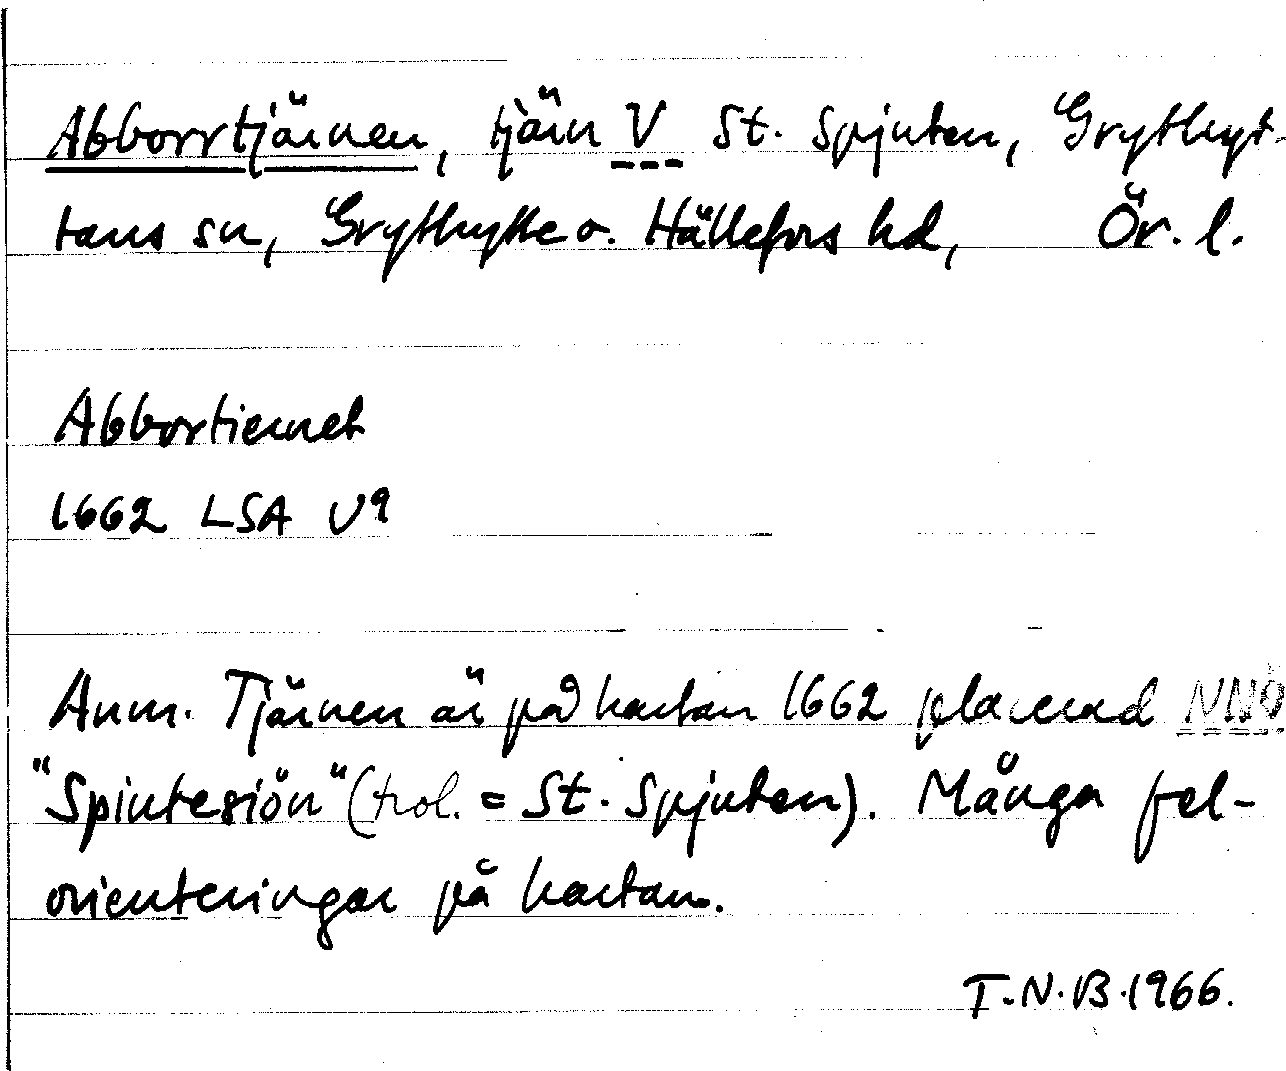 Abborrtjärnen, tjärn V St. Spjuten, Grythyt-
tans sn, Grythytte o. Hällefors hd, Ör. l.
Abbortiernet
1662 LSA U9
Anm. Tjärnen är på kartan 1662 placerad NNÖ
"Spiutesiön" (trol. = St. Spjuten). Många fel-
orienteringar på kartan.
T.N.B. 1966.